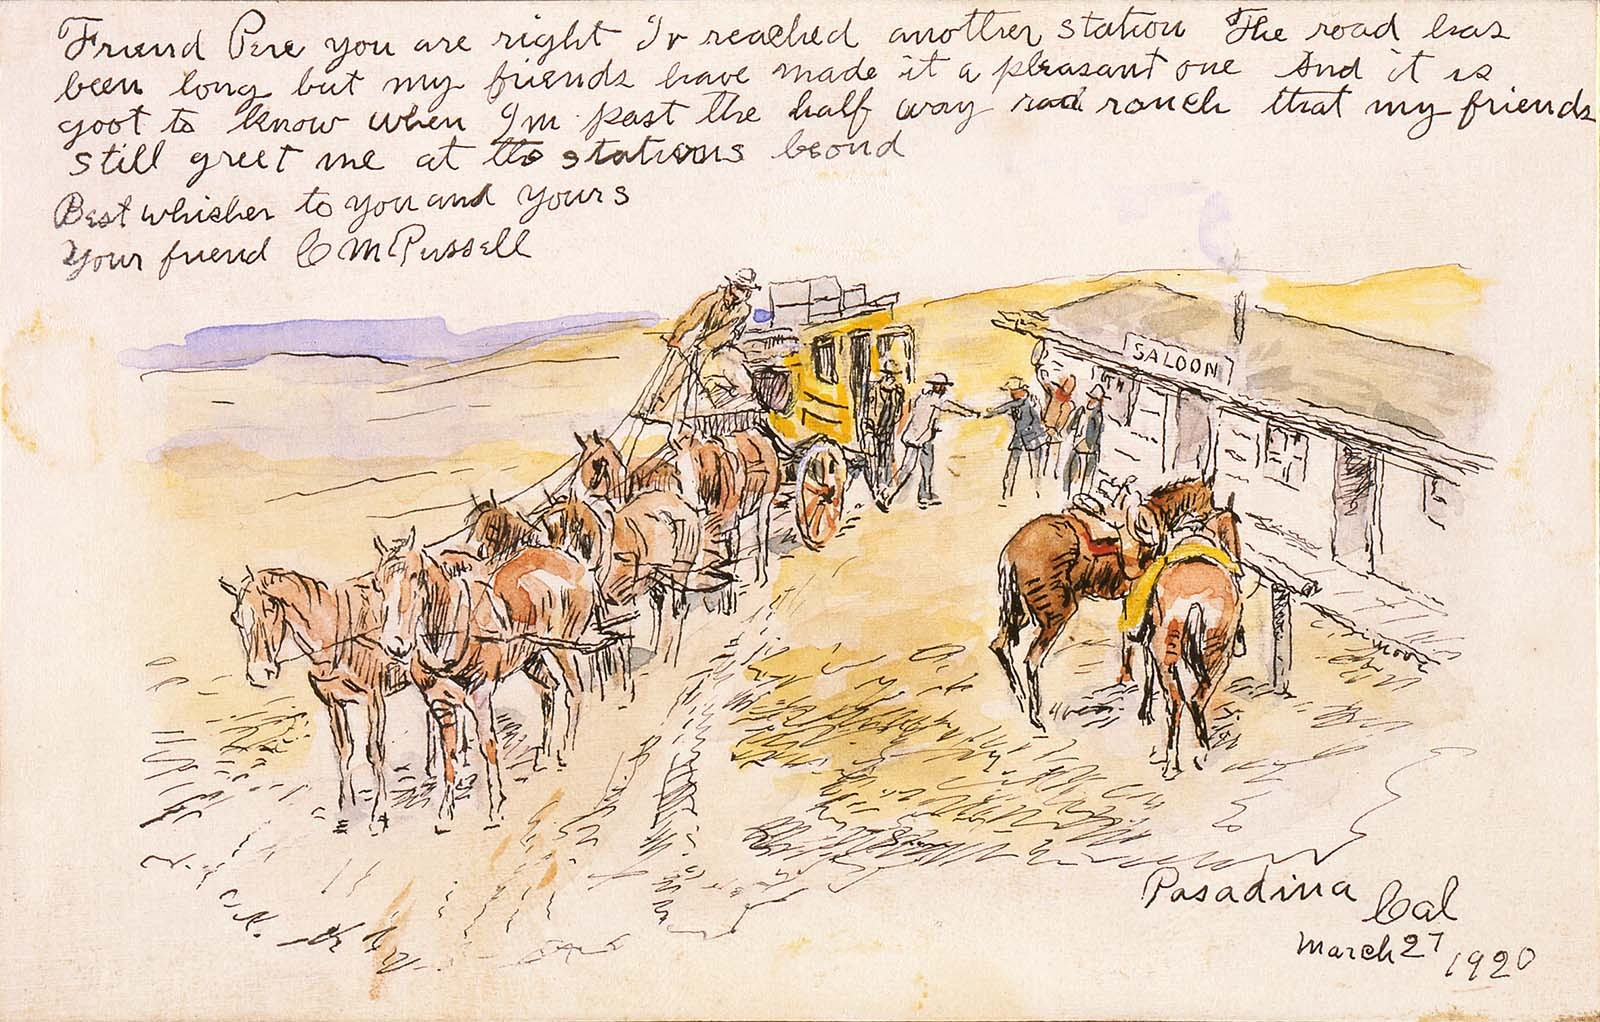 Friend Pere you are right Iv reached another station The road has
been long but my friends have made it a pleasant one And it is
goot to know when Im past the half way road ranch that my friends
still greet me at the stations beond
Best whisher to you and yours
Your friend C M Russell
SALOON
Pasadina Cal
March 27 1920